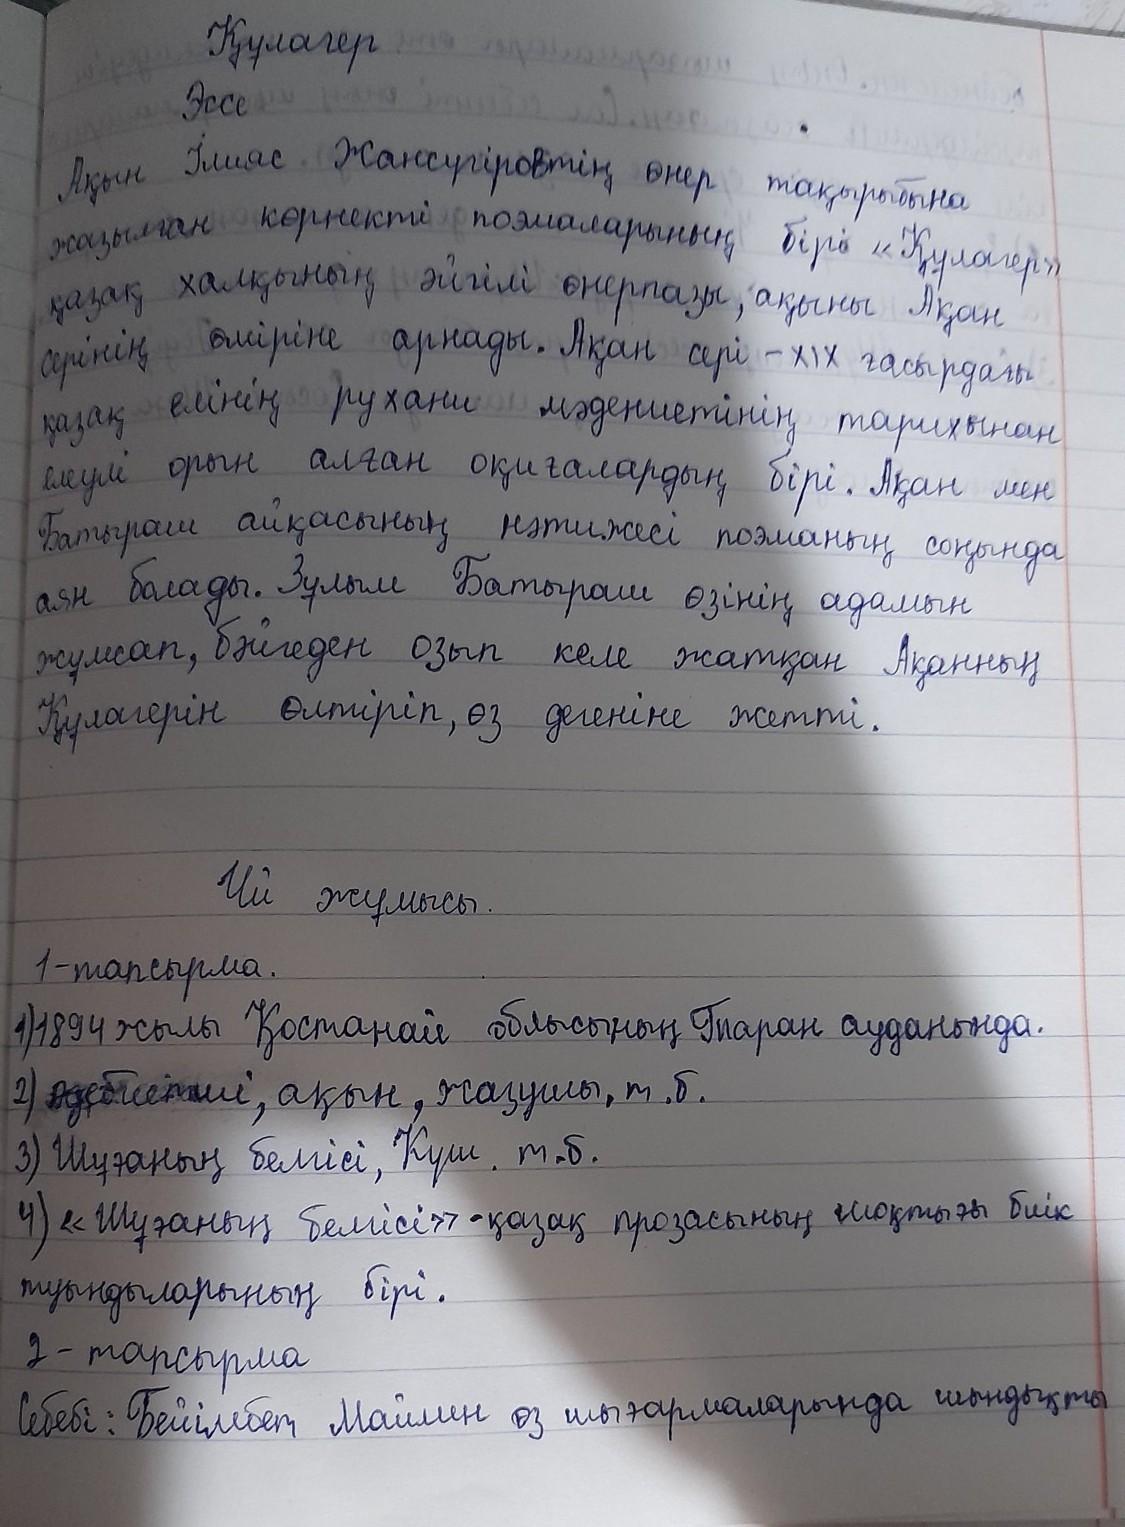 Құлагер
Эссе
Ақын Ілияс Жансүгіровтің өнер тақырыбына
жазылған көрнекті поэмаларының бірі «Құлагер»
қазақ халқының әйгілі өнерпазы, ақыны Ақан
серінің өміріне арнады. Ақан сері - XIX ғасырдағы
қазақ елінің рухани мәдениетінің тарихынан
елеулі орын алған оқиғалардың бірі. Ақан мен
Батыраш айқасының нәтижесі поэманың соңында
аян болады. Зұлым Батыраш өзінің адамын
жұмсап, бәйгеден озып келе жатқан Ақанның
Құлагерін өлтіріп, өз дегеніне жетті.
Үй жұмысы.
1-тапсырма.
1) 1894 жылы Қостанай облысының Таран ауданында.
2) әдебиетші, ақын, жазушы, т.б.
3) Шұғаның белгісі, Күш. т.б.
4) «Шұғаның белгісі» - қазақ прозасының шоқтығы биік
туындыларының бірі.
2 - тапсырма
Себебі: Бейімбет Майлин өз шығармаларында шындықты